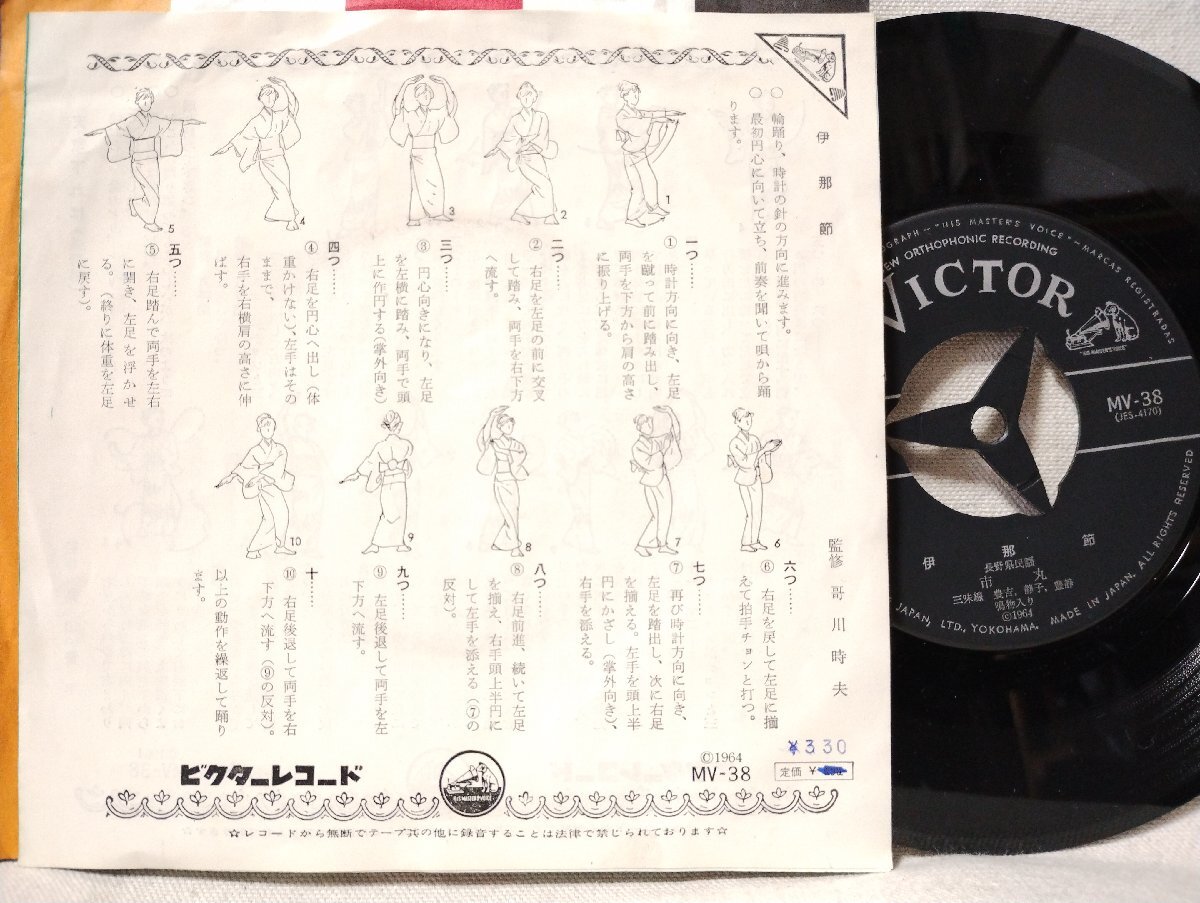 伊那節
○ 輪踊り、時計の針の方向に進みます。
○ 最初円心に向いて立ち、前奏を聞いて唄から踊
ります。
監修 哥川時夫
1
2
3
4
5
一つ……
① 時計方向に向き、左足
を蹴って前に踏み出し、
両手を下方から肩の高さ
に振り上げる。
二つ……
② 右足を左足の前に交叉
して踏み、両手を右下方
へ流す。
三つ……
③ 円心向きになり、左足
を左横に踏み、両手で頭
上に作円する(掌外向き)
四つ……
④ 右足を円心へ出し(体
重かけない)、左手はその
ままで、
右手を右横肩の高さに伸
ばす。
五つ……
⑤ 右足踏んで両手を左右
に開き、左足を浮かせ
る。(終りに体重を左足
に戻す)。
6
7
8
9
10
六つ……
⑥ 右足を戻して左足に揃
えて拍手チョンと打つ。
七つ……
⑦ 再び時計方向に向き、
左足を踏出し、次に右足
を揃える。左手を頭上半
円にかざし(掌外向き)、
右手を添える。
八つ……
⑧ 右足前進、続いて左足
を揃え、右手頭上半円に
して左手を添える(⑦の
反対)。
九つ……
⑨ 左足後退して両手を左
下方へ流す。
十……
⑩ 右足後退して両手を右
下方へ流す(⑨の反対)。
以上の動作を繰返して踊り
ます。
ビクターレコード
"HIS MASTER'S VOICE"
¥330
©1964
MV-38
定価 ¥
☆レコードから無断でテープ其の他に録音することは法律で禁じられております☆
"HIS MASTER'S VOICE" MARCAS REGISTRADAS
NEW ORTHOPHONIC RECORDING
VICTOR
"HIS MASTER'S VOICE"
MV-38
(JES-4170)
伊那節
長野県民謡
市丸
三味線 豊吉、静子、豊静
鳴物入り
©1964
JAPAN, LTD., YOKOHAMA. MADE IN JAPAN. ALL RIGHTS RESERVED